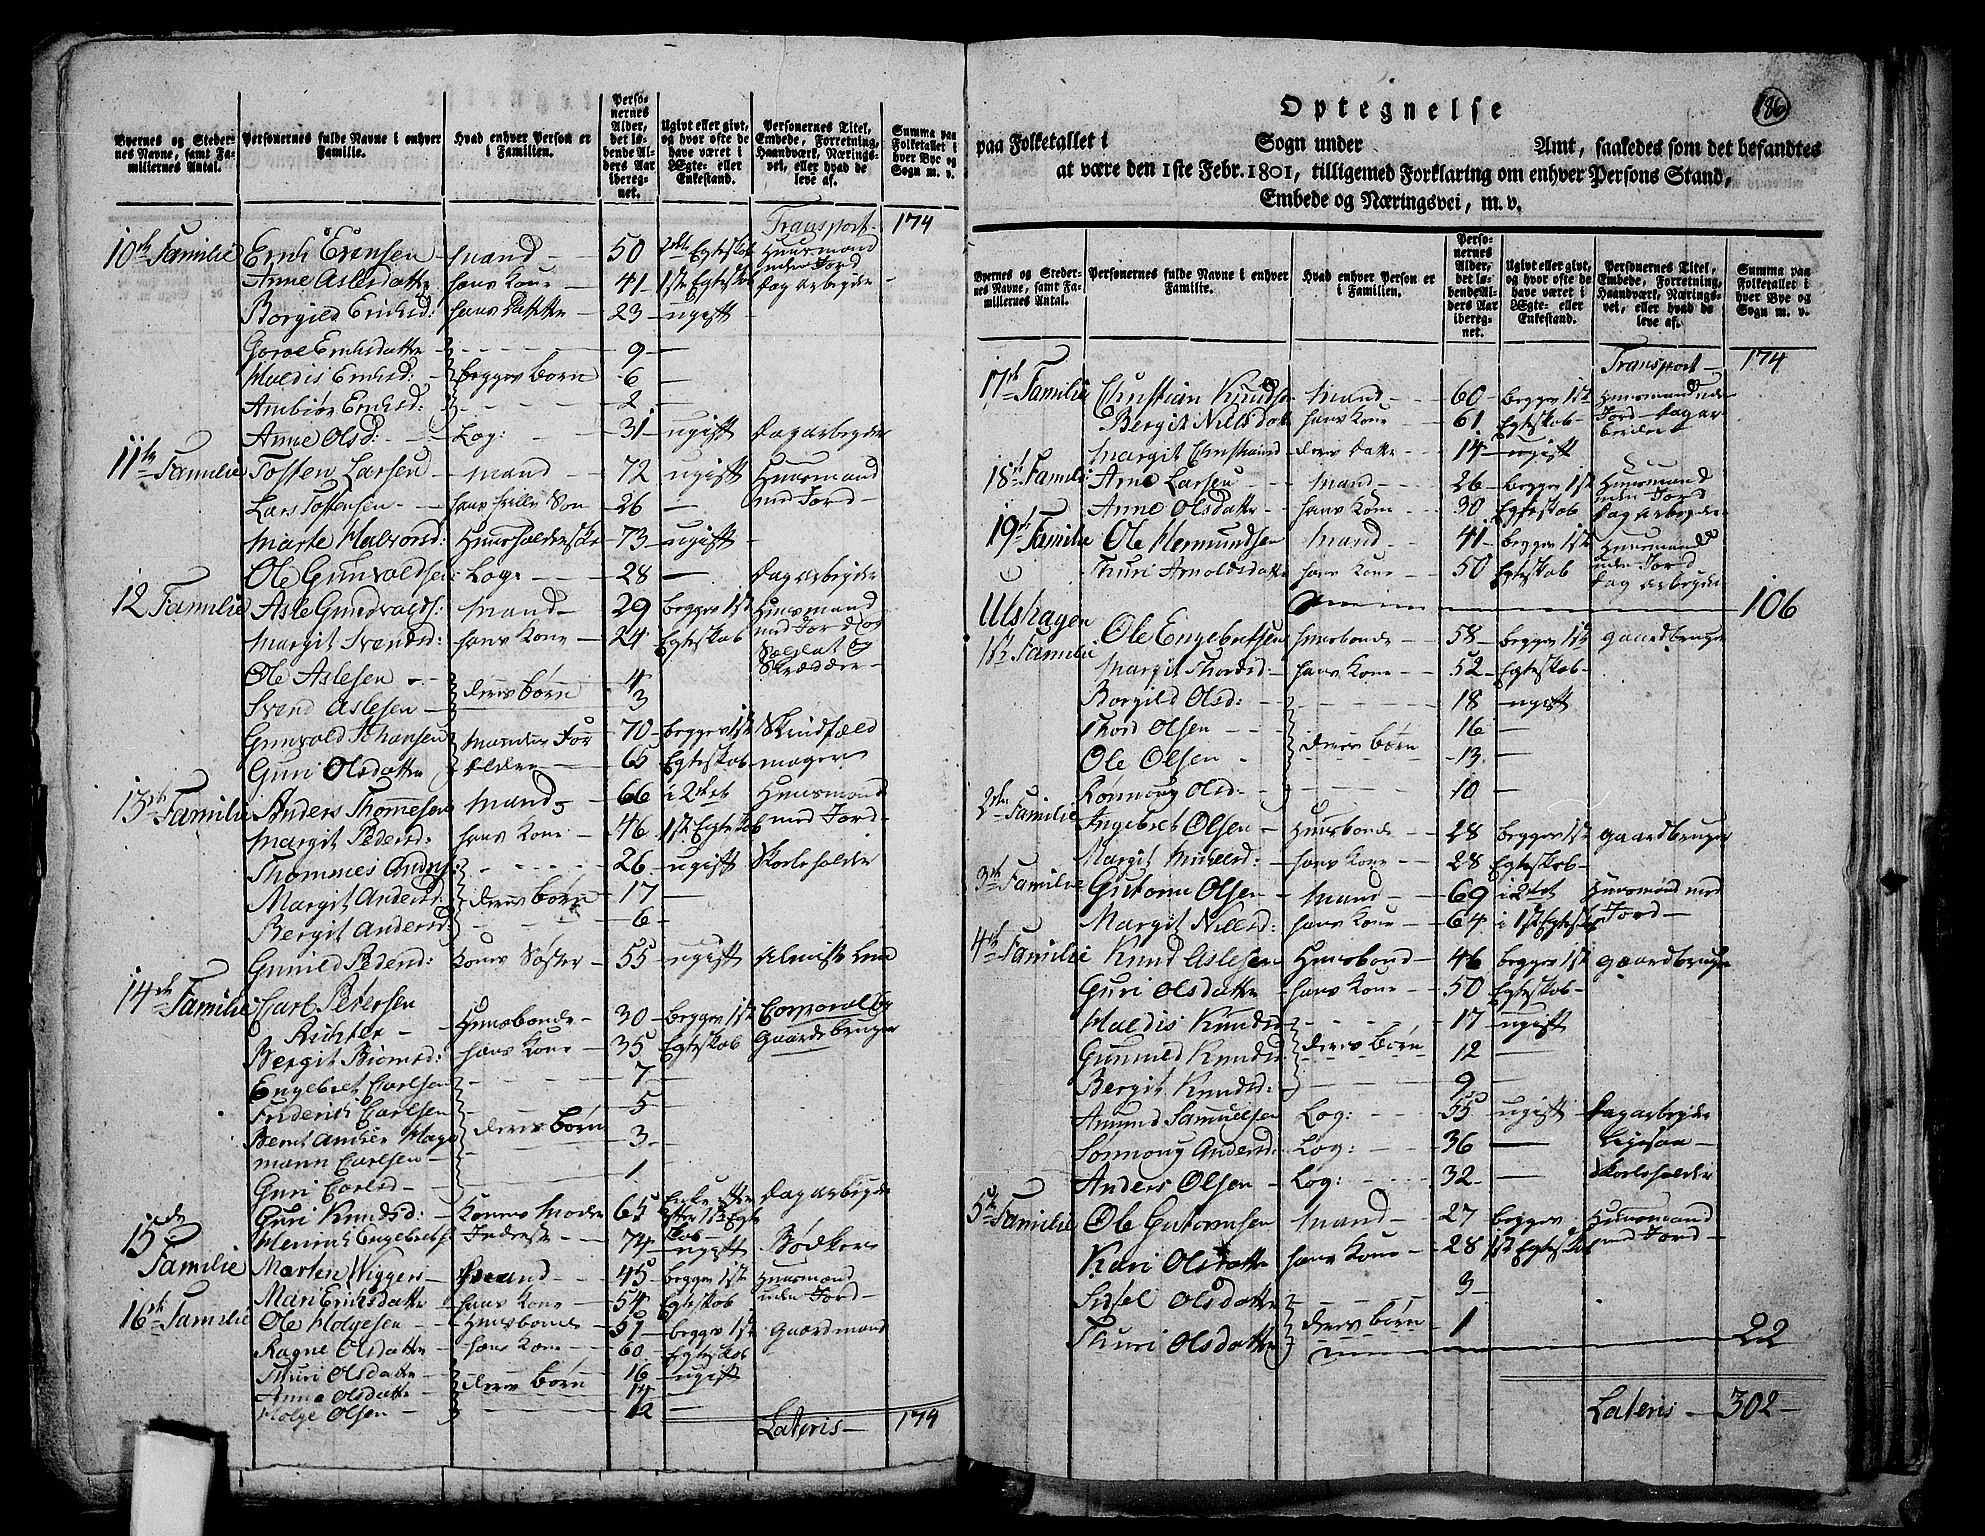 Byernes og Stedernes Navne, samt Familiernes Antal. | Personernes fulde Navne i enhver Familie. | Hvad enhver Person er i Familien. | Personernes Alder, det løbende Alders Aar iberegnet. | Ugivt eller givt, og hvor ofte de have været i Egte- eller Enkestand. | Personernes Titel, Embede, Forretning, Haandværk, Næringsvei, eller hvad de leve af. | Summa paa Folketallet i hver Bye og Sogn m. v.
Transport 174
10de Familie Erich Erichsen Mand 50 2det Egteskab Huusmand uden Jord
Anne Aslesdatter hans Kone 41 1ste Egteskab dagarbejder
Borgild Erichsd: hans datter 23 ugift
Goroe Erichsdatter 9
Haldis Erichsd: begges børn 6
Ambiør Erichsd: 2
Anne Olsd: Log: 31 ugift dagarbejder
11te Familie Tosten Larsen Mand 72 ugift Huusmand med Jord
Lars Tostensen hans Søn 26
Marte Halvorsd: Huusholderske 73 ugift
Ole Gunvaldsen Log: 28 dagarbejder
12 Familie Asle Gundvalds: Mand 29 begges 1ste Huusmand med Jord
Margit Svends: hans Kone 24 Egteskab Soldat og Skrædder
Ole Aslesen 4
Svend Aslesen deres børn 3
Gunvold Johansen Mandens For 70 begges 1ste Skindfæld
Guri Olsdatter ældre 65 Egteskab mager
13de Familie Anders Thommesen Mand 66 i 2det Huusmand
Margit Pedersd: hans Kone 46 1st Egteskab med Jord
Thommes Anders: 26 ugift Skoleholder
Margit Andersd: deres børn 17
Bergit Andersd: 6
Gunild Pedersd: Kones Søster 55 ugift Almisse Lem
14de Familie Carl Petersen
Richter Huusbonde 30 begges 1ste Corporal og
Bergit Biørnsd: hans Kone 35 Egteskab Gaardbruger
Engebret Carlsen 7
Friderich Carlsen 5
Bernt Ancher Hage deres børn 3
mann Carlsen
Guri Carlsd 1
Guri Knudsd: Kones Moder 65 Enke efter 1ste Egteskab dagarbejder
Henrich Engebrets: Inderste 74 ugift Bødker
15de
Familie Marten Wigger Mand 45 begges 1ste Huusmand
Mari Erichsdatter hans Kone 54 Egteskab uden Jord
16de Familie Ole Holgesen Huusbonde 57 begges 1ste Gaardmand
Ragne Olsdatter hans Kone 60 Egteskab
Thuri Olsdatter 16 ugift
Anna Olsdatter deres børn 14
Holge Olsen 12
Lateris 174
186
Optegnelse
paa Folketallet i Sogn under Amt, saaledes som det befandtes
at være den 1ste Febr. 1801, tilligemed Forklaring om enhver Persons Stand,
Embede og Næringsvei, m. v.
Byernes og Stedernes Navne, samt Familiernes Antal. | Personernes fulde Navne i enhver Familie. | Hvad enhver Person er i Familien. | Personernes Alder, det løbende Alders Aar iberegnet. | Ugivt eller givt, og hvor ofte de have været i Egte- eller Enkestand. | Personernes Titel, Embede, Forretning, Haandværk, Næringsvei, eller hvad de leve af. | Summa paa Folketallet i hver Bye og Sogn m. v.
Transport 174
17de Familie Christian Knudsen Mand 60 begges 1ste Huusmand uden
Bergit Nilsdatter hans Kone 61 Egteskab Jord dagarbeider
Margit Christiansd deres datter 14 ugift
18de Familie Arne Larsen Mand 26 begges 1ste Huusmand uden Jord
Anne Olsdatter hans Kone 30 Egteskab dagarbejder
19de Familie Ole Hermundsen Mand 41 begges 1ste Huusmand uden Jord
Thuri Arnoldsdatter hans Kone 50 Egteskab dagarbejder
106
Ulshagen
1ste Familie Ole Engebretsen Huusbonde 58 begges 1ste gaardbruger
Margit Thordsd: hans Kone 52 Egteskab
Borgild Olsd: 18 ugift
Thord Olsen 16
Ole Olsen deres børn 13
Ronnoug Olsd: 10
2den Familie Engebret Olsen Huusbonde 28 begges 1ste gaardbruger
Margit Michelsd: hans Kone 28 Egteskab
3de Familie Gutorm Olsen Mand 69 i 2det Huusmand med
Margit Nilsd: hans Kone 64 i 1st Egteskab Jord
4de Familie Knud Aslesen Huusbond 46 begges 1ste gaardbruger
Guri Olsdatter hans Kone 50 Egteskab
Haldis Knudsd: 17 ugift
Gunild Knudsd: deres børn 12
Bergit Knudsd: 9
Amund Samuelsen Log: 55 ugift dagarbejder
Sønnoug Andersd: Log: 36 Ligesaa
Anders Olsen Log: 32 Skoleholder
5te Familie Ole Gutormsen Mand 27 begges Huusmand
Kari Olsdatter hans Kone 28 1st Egteskab med Jord
Sidsel Olsdatter 3
Thuri Olsdatter deres børn 1
22
Lateris 302